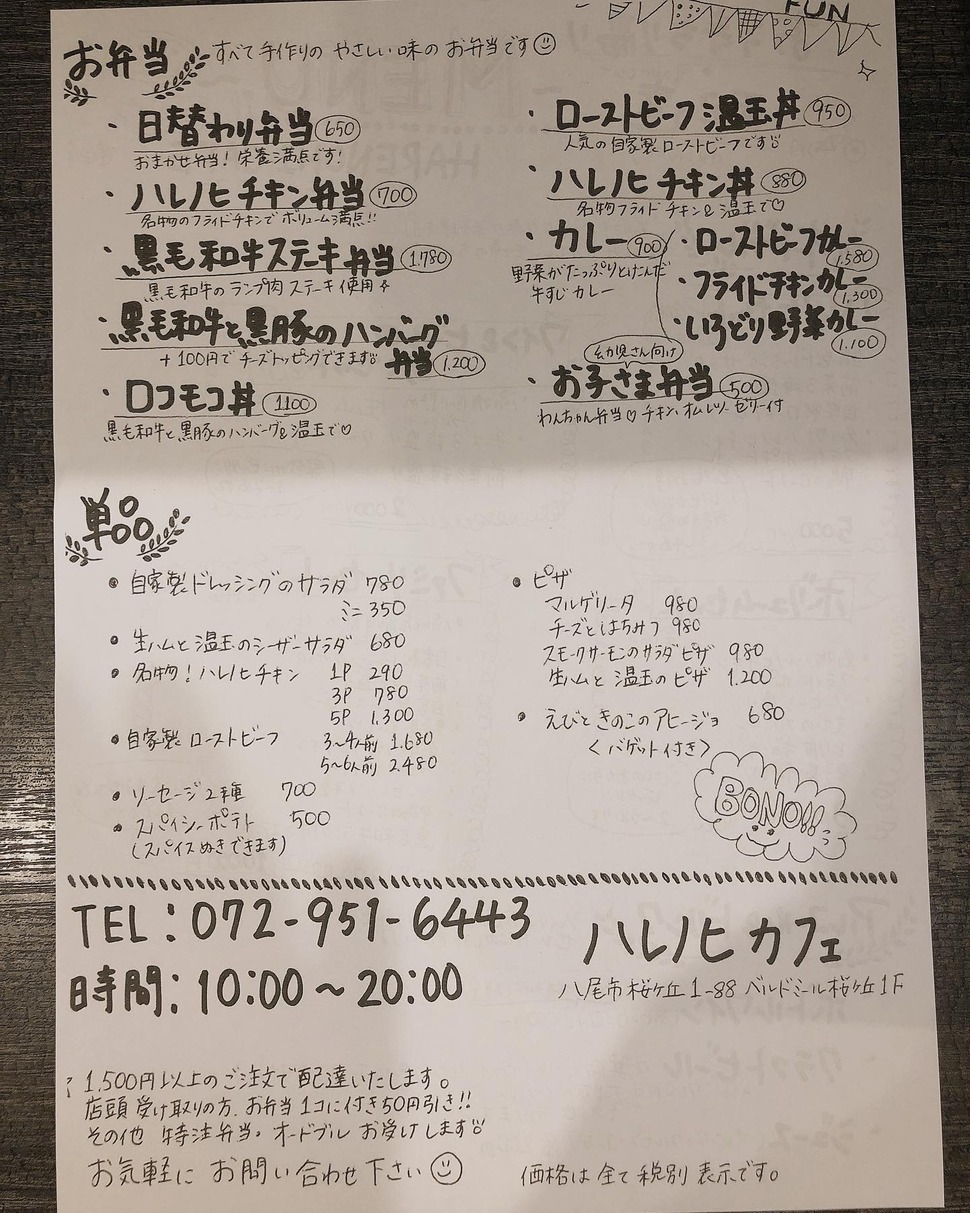 FUN
お弁当 すべて手作りの やさしい味の お弁当です
・日替わり弁当 650
おまかせ弁当! 栄養満点です!
・ハレノヒチキン弁当 700
名物のフライドチキンで ボリューム満点!!
・黒毛和牛ステーキ弁当 1,780
黒毛和牛のランプ肉ステーキ使用
・黒毛和牛と黒豚のハンバーグ
弁当 1,200
+100円で チーズトッピングできます
・ロコモコ丼 1100
黒毛和牛と黒豚のハンバーグ&温玉で♡
・ローストビーフ温玉丼 950
人気の自家製ローストビーフです
・ハレノヒチキン丼 880
名物フライドチキン&温玉で♡
・カレー 900
野菜がたっぷりとけこんだ
牛すじカレー
・ローストビーフカレー
1,580
・フライドチキンカレー
1,300
・いろどり野菜カレー
1,100
幼児さん向け
・お子さま弁当 500
わんちゃん弁当♡チキン、オムレツ、ゼリー付
単品
・自家製ドレッシングのサラダ 780
ミニ 350
・生ハムと温玉のシーザーサラダ 680
・名物!ハレノヒチキン 1P 290
3P 780
5P 1,300
・自家製ローストビーフ 3〜4人前 1,680
5〜6人前 2,480
・ソーセージ2種 700
・スパイシーポテト 500
(スパイスぬきできます)
・ピザ
マルゲリータ 980
チーズとはちみつ 980
スモークサーモンのサラダピザ 980
生ハムと温玉のピザ 1,200
・えびときのこのアヒージョ 680
<バゲット付き>
BONO!!
TEL:072-951-6443
時間:10:00〜20:00
ハレノヒカフェ
八尾市桜ヶ丘1-88 ベルドミール桜ヶ丘1F
1,500円以上のご注文で配達いたします。
店頭受け取りの方、お弁当1コに付き50円引き!!
その他 特注弁当・オードブル お受けします
お気軽に お問い合わせ下さい
価格は全て税別表示です。